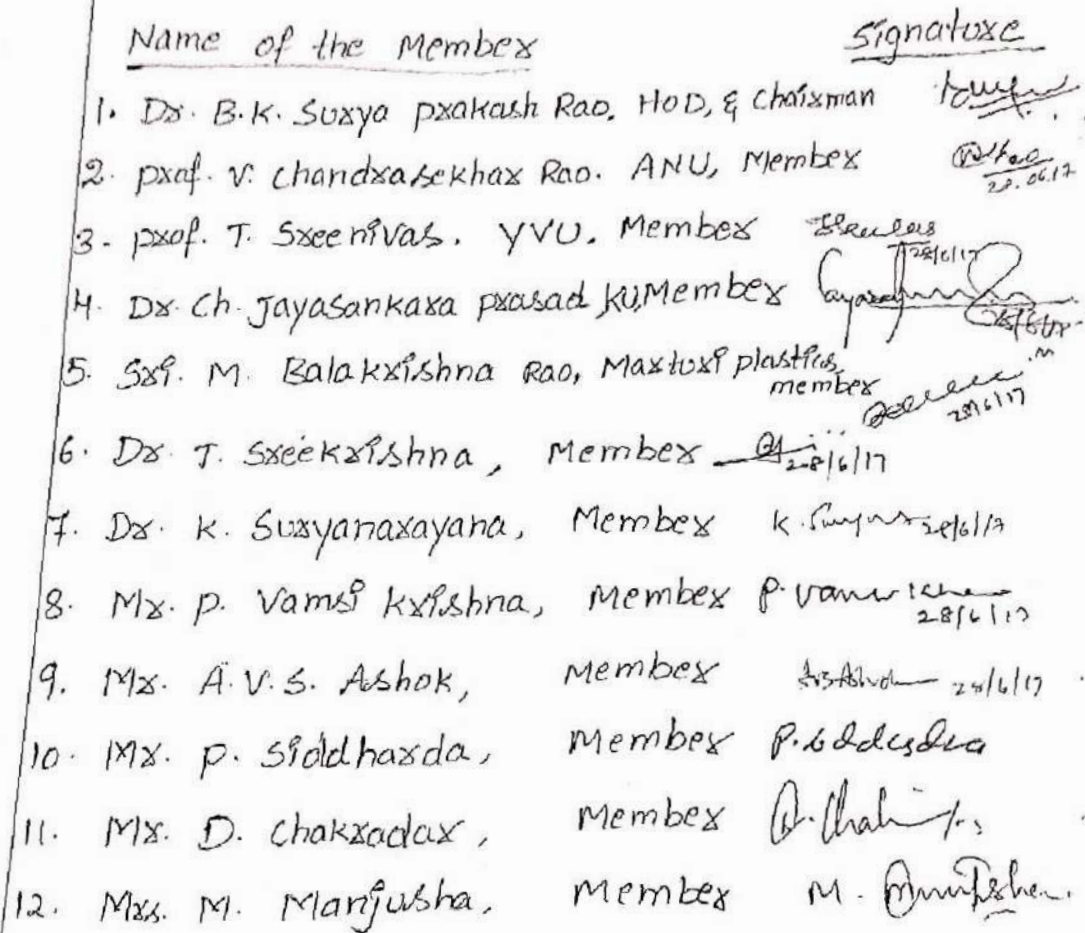 Name of the Member Signature
1. Dr. B.K. Surya prakash Rao, HOD, & Chairman
2. prof. V. Chandrasekhar Rao. ANU, Member 28.06.17
3. prof. T. Sreenivas. YVU. Member 28/6/17
4. Dr. Ch. Jayasankara prasad, KU, Member
5. Sri. M. Balakrishna Rao, Marturi plastics,
member 28/6/17
6. Dr. T. Sreekrishna, Member 28/6/17
7. Dr. K. Suryanarayana, Member 28/6/17
8. Mr. P. Vamsi krishna, Member
28/6/17
9. Mr. A.V.S. Ashok, Member 28/6/17
10. Mr. P. Siddharda, Member
11. Mr. D. Chakradar, Member
12. Mrs. M. Manjusha, Member M.